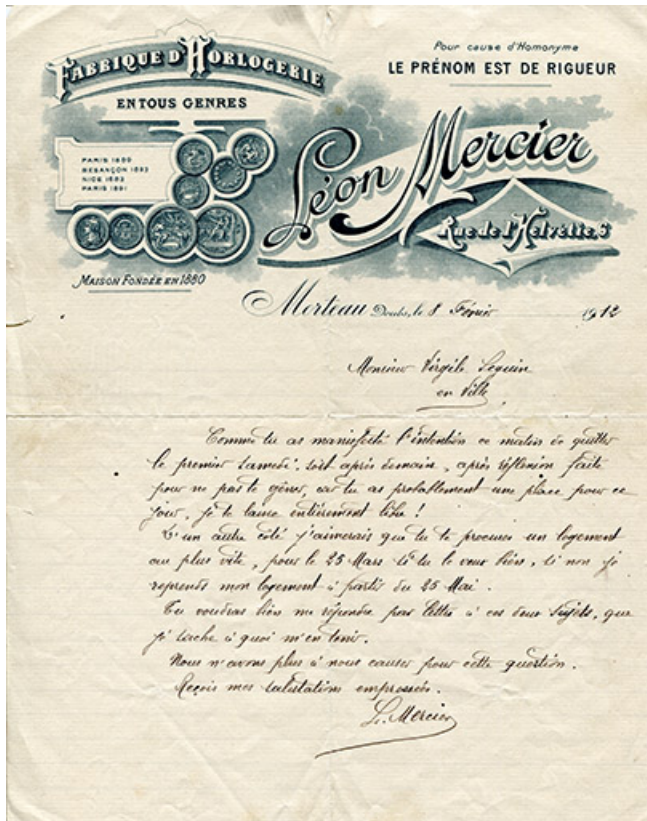 FABRIQUE D'HORLOGERIE
EN TOUS GENRES
Pour cause d'Homonyme
LE PRÉNOM EST DE RIGUEUR
PARIS 1889
BESANÇON 1893
NICE 1883
PARIS 1891
Léon Mercier
Rue de l'Helvétie, 6
MAISON FONDÉE EN 1880
Morteau Doubs, le 8 Février 1912
Monsieur Virgile Seguin
en Ville
Comme tu as manifesté l'intention ce matin de quitter
le premier samedi, soit après demain, après réflexion faite
pour ne pas te gêner, car tu as probablement une place pour ce
jour, je te laisse entièrement libre !
D'un autre côté j'aimerais que tu te procures un logement
au plus vite, pour le 25 Mars si tu le veux bien, si non je
reprends mon logement à partir du 25 Mai.
Tu voudras bien me répondre par lettre à ces deux sujets, que
je sache à quoi m'en tenir.
Nous n'avons plus à nous causer pour cette question.
Reçois mes salutations empressées.
L. Mercier